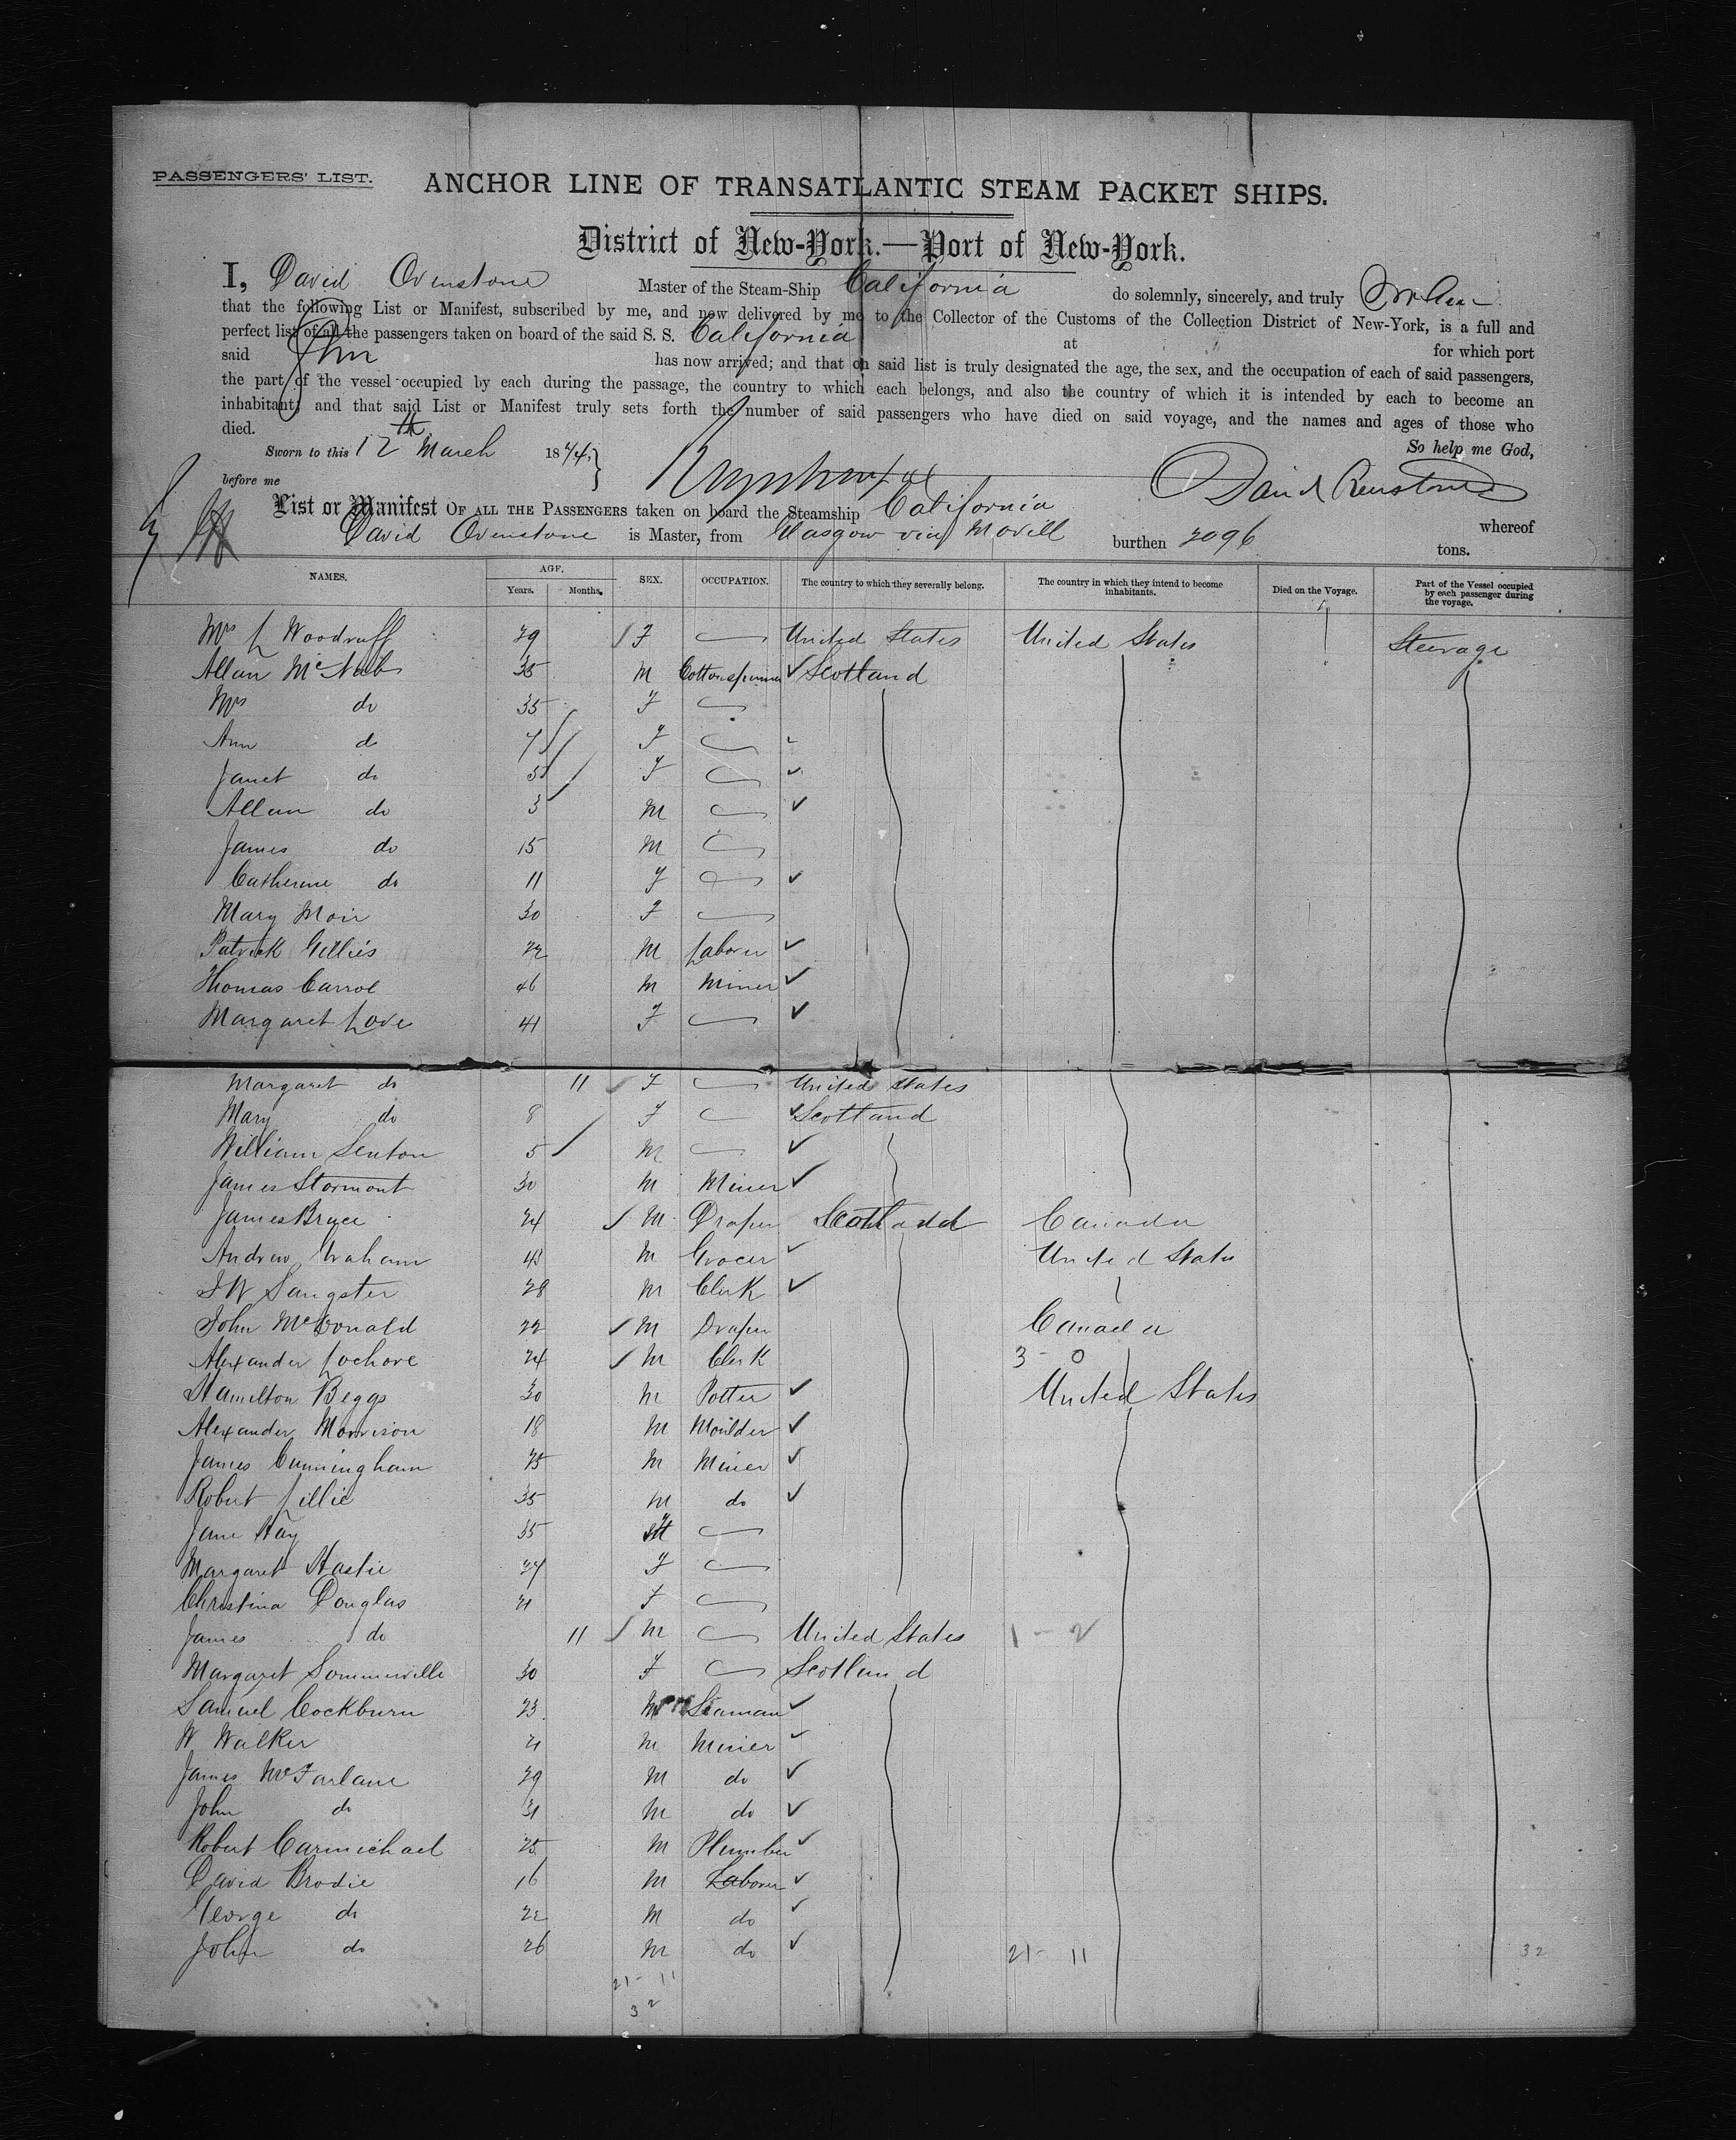 PASSENGERS' LIST.
ANCHOR LINE OF TRANSATLANTIC STEAM PACKET SHIPS.
District of New-York.—Port of New-York.
I, David Ovenstone Master of the Steam-Ship California do solemnly, sincerely, and truly
that the following List or Manifest, subscribed by me, and now delivered by me to the Collector of the Customs of the Collection District of New-York, is a full and
perfect list of all the passengers taken on board of the said S. S. California at for which port
said has now arrived; and that on said list is truly designated the age, the sex, and the occupation of each of said passengers,
the part of the vessel occupied by each during the passage, the country to which each belongs, and also the country of which it is intended by each to become an
inhabitant; and that said List or Manifest truly sets forth the number of said passengers who have died on said voyage, and the names and ages of those who
died. So help me God,
Sworn to this 12th March 1874,
before me David Ovenstone
List or Manifest OF ALL THE PASSENGERS taken on board the Steamship California whereof
David Ovenstone is Master, from Glasgow via Movill burthen 2096 tons.
NAMES. AGE. Years. Months. SEX. OCCUPATION. The country to which they severally belong. The country in which they intend to become inhabitants. Died on the Voyage. Part of the Vessel occupied by each passenger during the voyage.
Mrs L Woodruff 29 F United States United States Steerage
Allan McNab 35 M Cottonspinner Scotland
Mrs do 35 F
Ann do 7 F
Janet do 5 F
Allan do 3 M
James do 15 M
Catherine do 11 F
Mary Moir 30 F
Patrick Gillies 22 M Laborer
Thomas Carrol 46 M Miner
Margaret Love 41 F
Margaret do 11 F United States
Mary do 8 F Scotland
William Senton 5 M
James Stormont 30 M Miner
James Bryce 24 M Draper Scotland Canada
Andrew Graham 43 M Grocer United States
J W Sangster 28 M Clerk
John McDonald 22 M Draper Canada
Alexander Lochore 24 M Clerk 3 - 0
Hamilton Beggs 30 M Potter United States
Alexander Morrison 18 M Moulder
James Cunningham 25 M Miner
Robert Lillie 35 M do
Jane Hay 35 F
Margaret Hastie 27 F
Christina Douglas 21 F
James do 11 M United States 1 - 2
Margaret Sommerville 30 F Scotland
Samuel Cockburn 23 M Seaman
W Walker 21 M Miner
James McFarlane 29 M do
John do 31 M do
Robert Carmichael 25 M Plumber
David Brodie 16 M Laborer
George do 22 M do
John do 26 M do 21 - 11 32
21 - 11
32